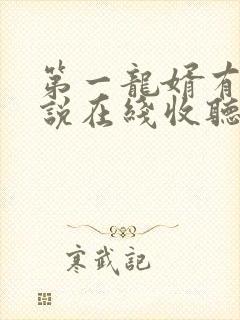 第一龍婿有
說在綫收聽
寒武記